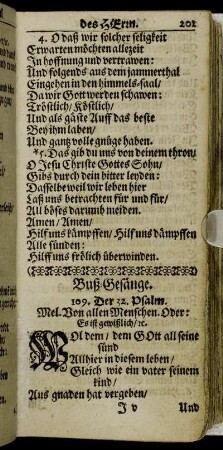 des HErrn. 201
4. O daß wir solcher seligkeit
Erwarten möchten allezeit
In hoffnung und vertrawen:
Und folgends aus dem jammerthal
Eingehen in den himmels-saal/
Da wir Gott werden schawen:
Tröstlich/ Köstlich/
Und als gäste Auff das beste
Bey ihm laben/
Und gantz volle gnüge haben.
*5. Das gib du uns von deinem thron/
O Jesu Christe Gottes Sohn/
Gibs durch dein bitter leyden:
Dasselbe weil wir leben hier
Laß uns betrachten für und für/
All böses darumb meiden.
Amen/ Amen/
Hilf uns kämpffen/ Hilf uns dämpffen
Alle sünden:
Hilff uns frölich überwinden.
Buß-Gesänge.
109. Der 32. Psalm.
Mel. Von allen Menschen. Oder:
Es ist gewißlich/ ꝛc.
Wol dem/ dem GOtt all seine
sünd
Allhier in diesem leben/
Gleich wie ein vater seinem
kind/
Aus gnaden hat vergeben/
J v Und